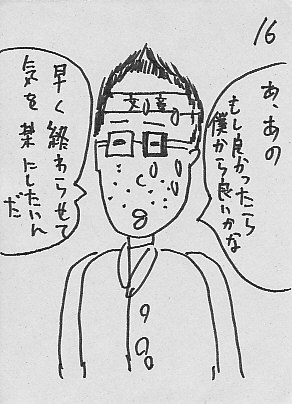 16
あ、あの
もし良かったら
僕から良いかな
早く終わらせて
気を楽にしたいん
だ